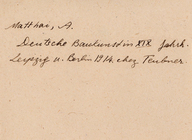 Matthäi, A.
Deutsche Baukunst im XIX. Jahrh.
Leipzig u. Berlin 1914. chez Teubner.